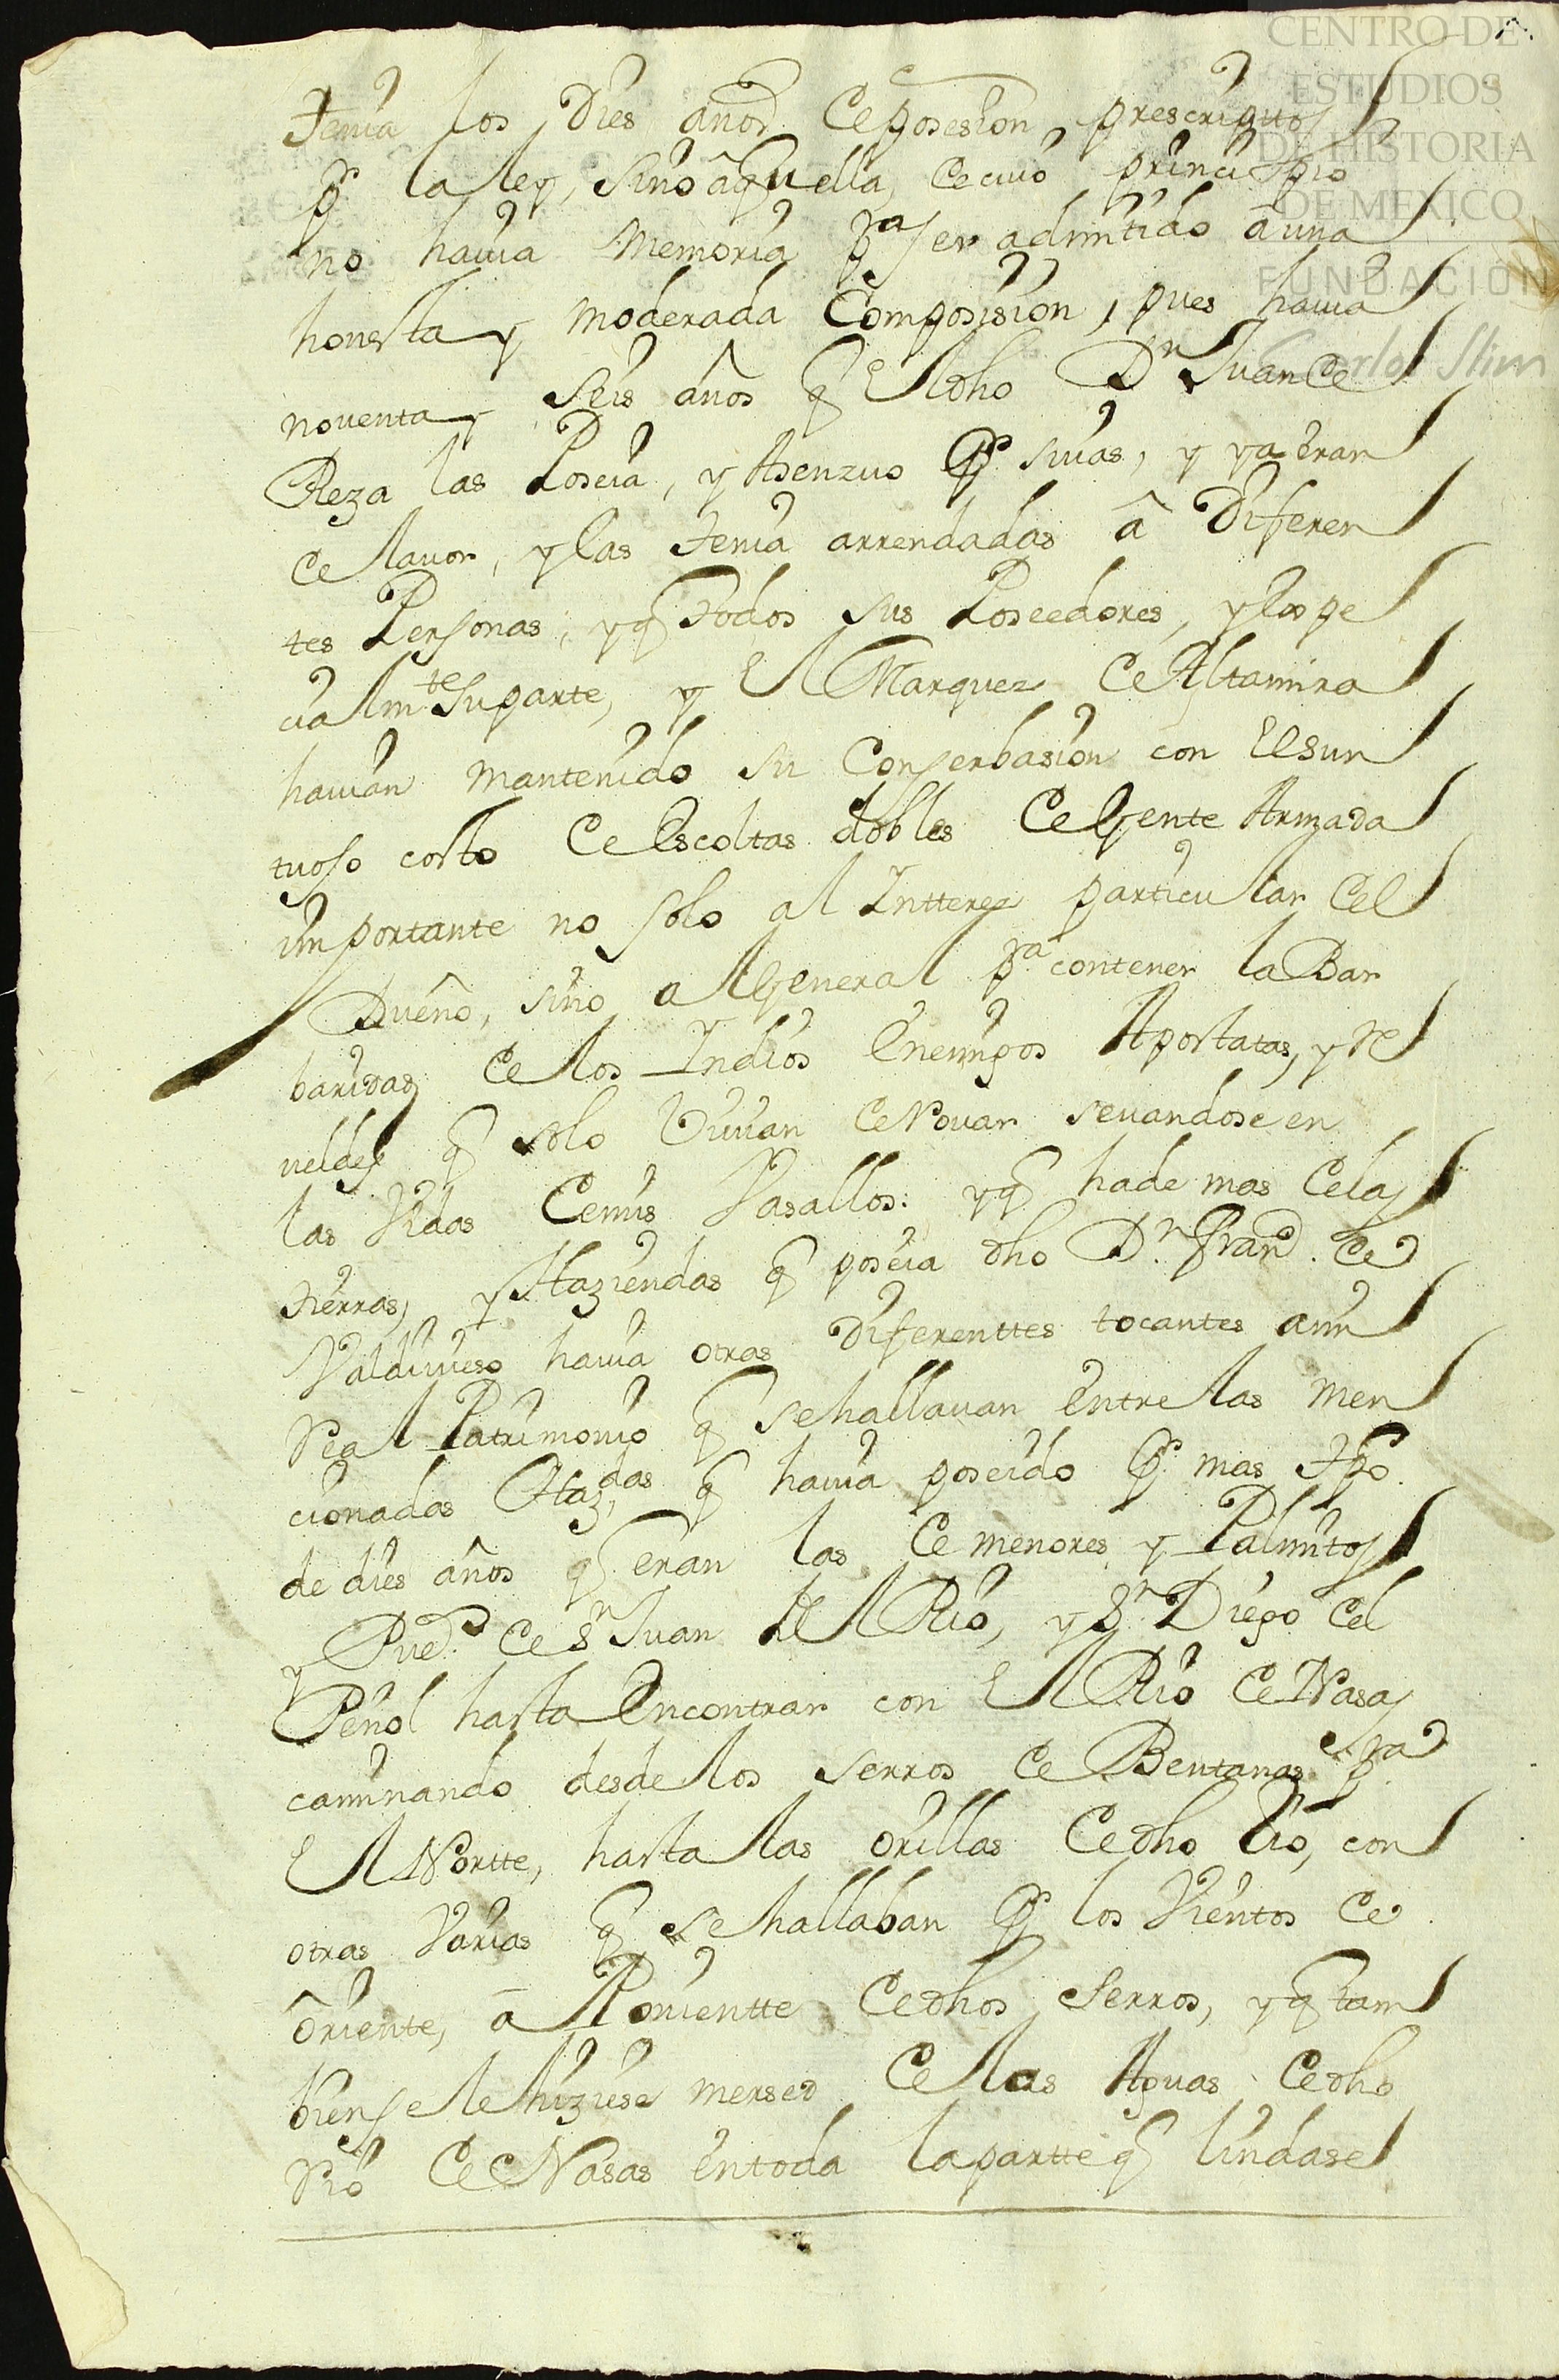 CENTRO DE
ESTUDIOS
DE HISTORIA
DE MEXICO
FUNDACIÓN
Carlos Slim
tenia los Dies años de posesion prescriptos
pr. la ley, sino aquella, de cuio principio
no hauia memoria pa. ser admitido a una
honesta y moderada Composision, pues hauia
noventa y seis años q el dho Dn Juan de
Reza las Poseia, y Asenzuo pr. suias, y ya eran
de lauor, y las tenia arrendadas â Diferen
tes Personas, y q todos sus Poseedores, y espe
cialmte su parte, y el Marquez de Altamira
hauian mantenido su Conserbasion con el sun
tuoso costo de Escoltas dobles de Gente Armada
importante no solo al Intterez particular del
Dueño, sino al General pa. contener la Bar
baridad de los Indios Enemigos Apostatas, y Re
ueldes q solo viuian de Rouar seuandose en
las Vidas de mis Vasallos: y q ha de mas de las
tierras, y Haziendas q poseia dho Dn. Franco. de
Valdiuieso hauia otras Diferenttes tocantes a mi
Real Patrimonio q se hallauan Entre las men
cionadas Hazdas, q hauia poseido pr. mas tpo.
de dies años q eran las de menores y Palmitos
y Pueo. de Sn Juan del Rio, y Sn. Diego del
Peñol hasta Encontrar con el Rio de Nasas
caminando desde los serros de Bentanas pa.
el Nortte, hasta las orillas de dho Rio, con
otras Varias q se hallaban pr. los Vientos de
Oriente, â Ponientte de dhos serros, y q tam
bien se le hiziese mersed de las Aguas de dho
Rio de Nasas en toda la partte q lindase